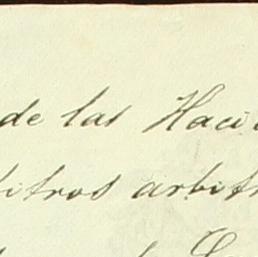 de las Haci
bitros arbitr